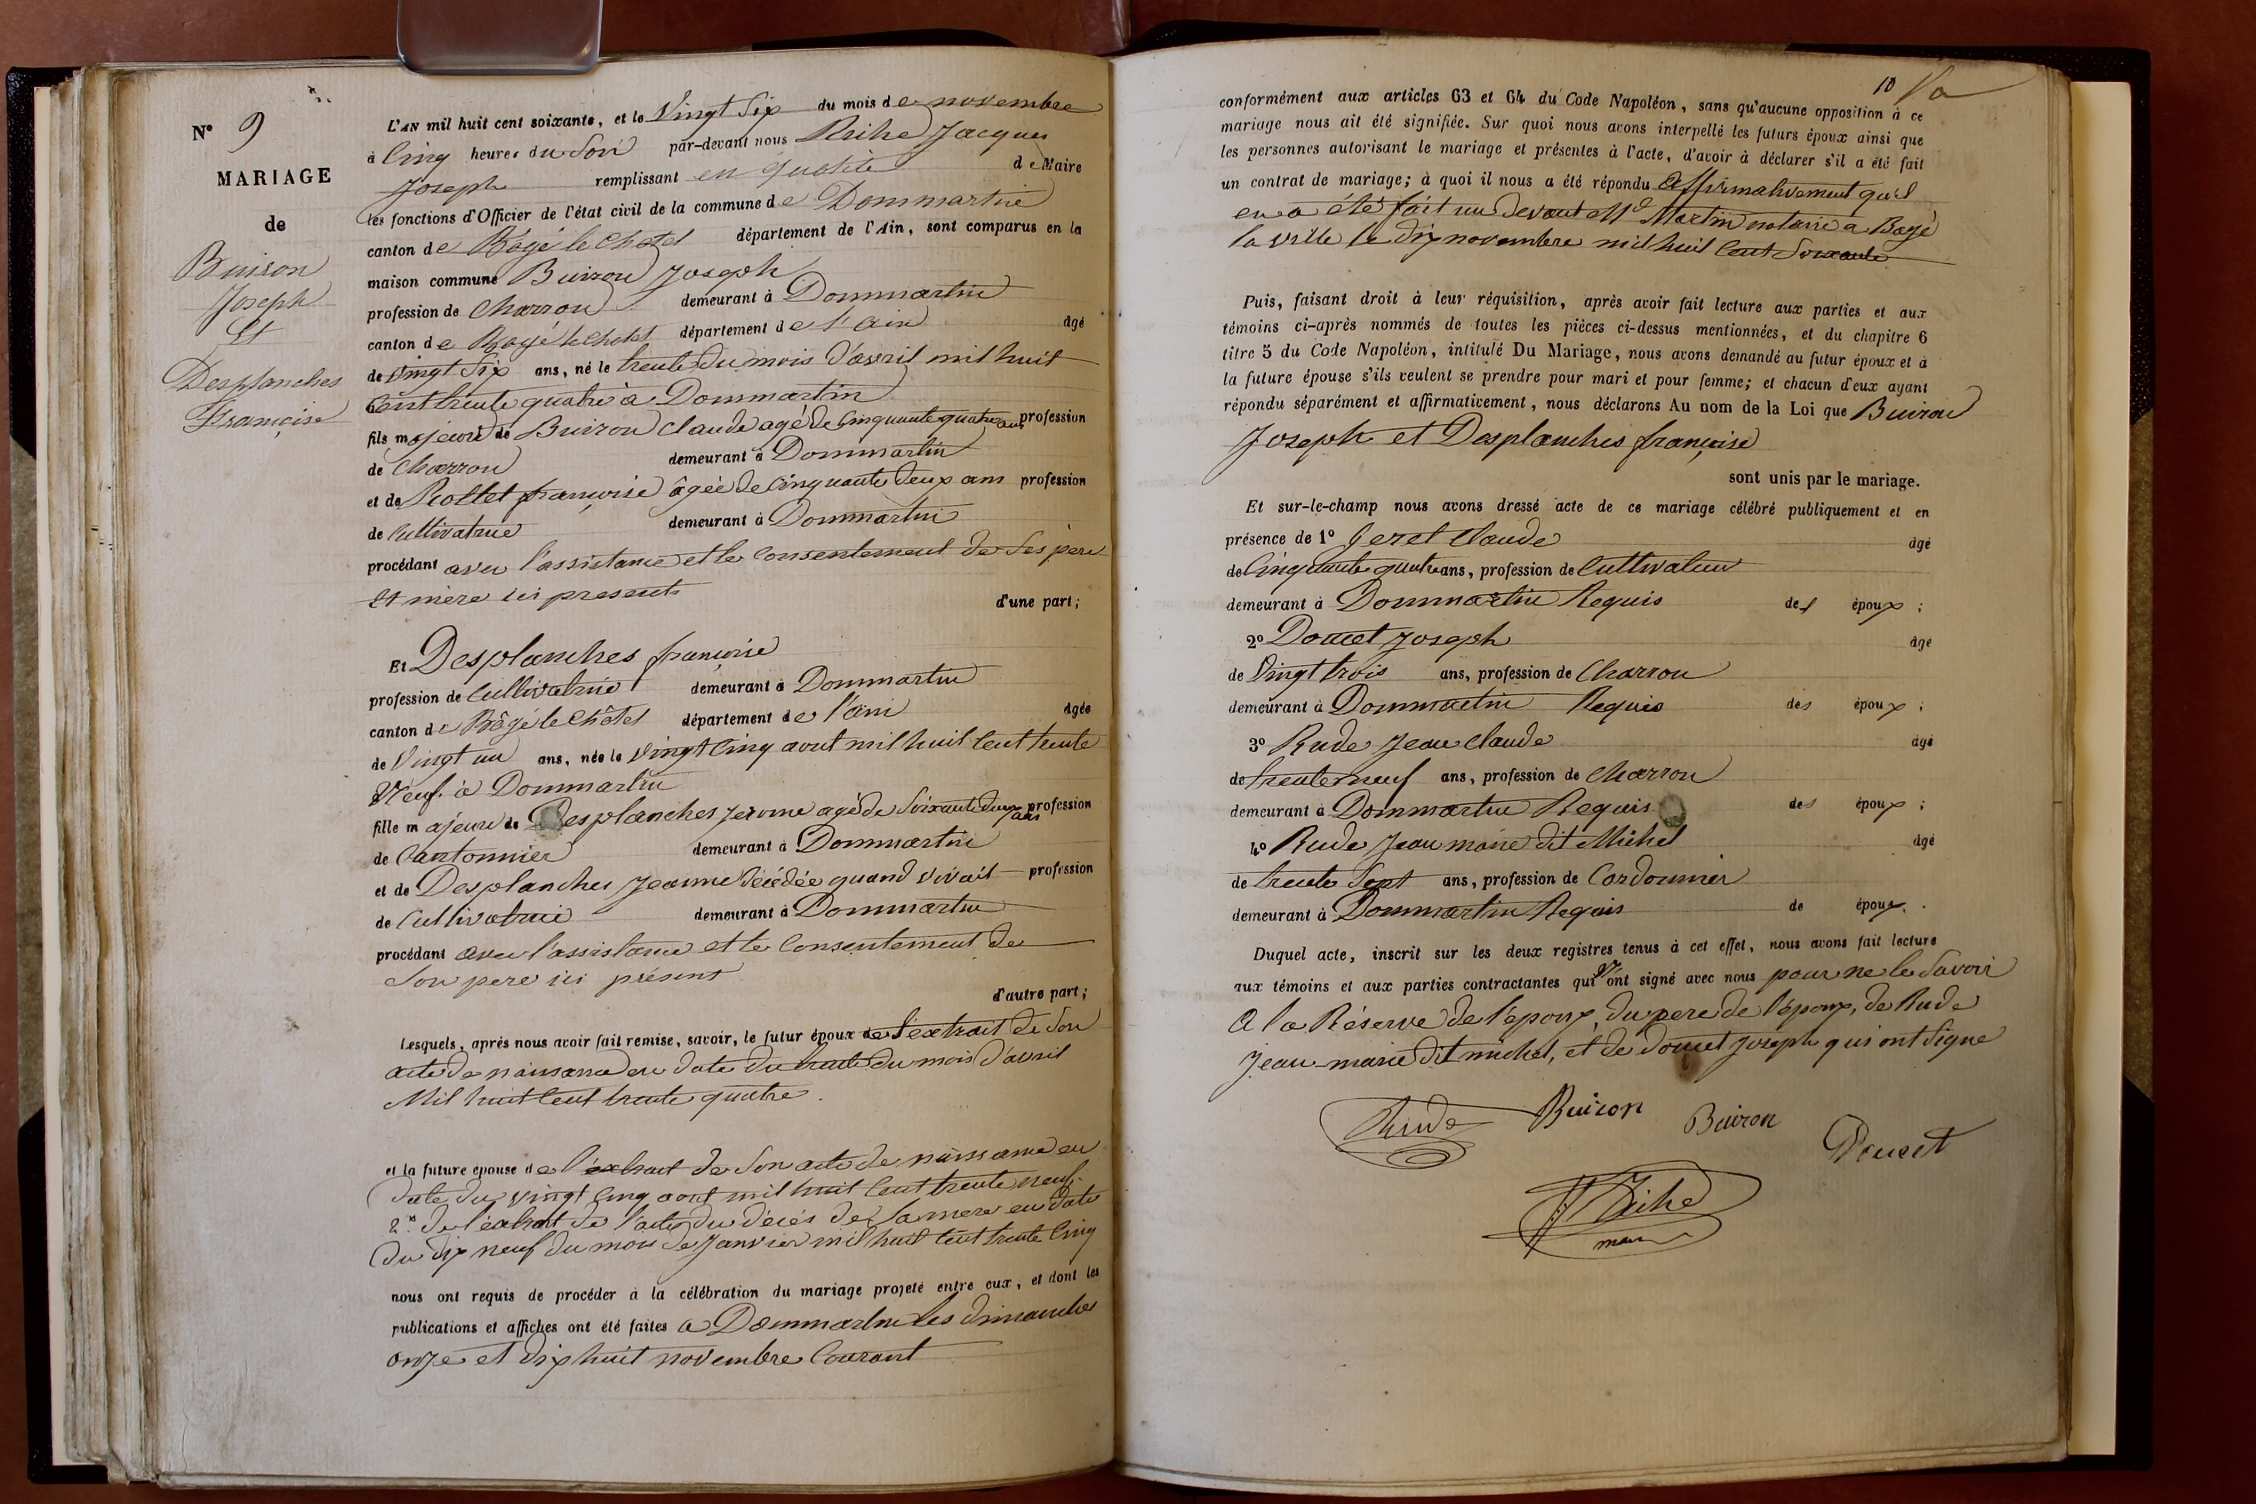 N° 9
MARIAGE
de
Buiron
Joseph
Et
Desplanches
Françoise
L'AN mil huit cent soixante, et le Vingt Six du mois de novembre
à Cinq heures du Soir par-devant nous Jacques
Joseph remplissant en qualité de Maire
les fonctions d'Officier de l'état civil de la commune de Dommartin
canton de Bâgé le Châtel département de l'Ain, sont comparus en la
maison commune Buiron Joseph
profession de Charron demeurant à Dommartin
canton de Bagé le Chatel département de l'ain âgé
de Vingt Six ans, né le trente du mois d'avril mil huit
Cent trente quatre à Dommartin
fils majeur de Buiron Claude agé de Cinquante quatre ans profession
de Charron demeurant à Dommartin
et de françoise âgée de Cinquante deux ans profession
de Cultivatrice demeurant à Dommartin
procédant avec l'assistance et le Consentement de Ses père
Et mere ici presents d'une part;
Et Desplanches françoise
profession de Cultivatrice demeurant à Dommartin
canton de Bâgé le Châtel département de l'ain âgée
de Vingt un ans, née le vingt Cinq aout mil huit Cent trente
Neuf à Dommartin
fille majeure de Desplanches Jerome agé de Soixante deux ans profession
de Cantonnier demeurant à Dommartin
et de Desplanches Jeanne décédée quand vivait profession
de Cultivatrice demeurant à Dommartin
procédant avec l'assistance et le Consentement de
Son pere ici présent
d'autre part;
Lesquels, après nous avoir fait remise, savoir, le futur époux de l'extrait de Son
acte de naissance en date du trente du mois d'avril
Mil huit Cent trente quatre.
et la future épouse de l'extrait de Son acte de naissance en
date du vingt Cinq aout mil huit Cent trente neuf.
2° de l'extrait de l'acte du décés de Sa mere en date
du dix neuf du mois de Janvier mil huit Cent Cinq
nous ont requis de procéder à la célébration du mariage projeté entre eux, et dont les
publications et affiches ont été faites a Dommartin les dimanches
onze et dix huit novembre Courant
10
conformément aux articles 63 et 64 du Code Napoléon, sans qu'aucune opposition à ce
mariage nous ait été signifiée. Sur quoi nous avons interpellé les futurs époux ainsi que
les personnes autorisant le mariage et présentes à l'acte, d'avoir à déclarer s'il a été fait
un contrat de mariage; à quoi il nous a été répondu affirmativement qu'il
en a été fait un devant Me Martin notaire a Bagé
la ville le dix novembre mil huit Cent Soixante
Puis, faisant droit à leur réquisition, après avoir fait lecture aux parties et aux
témoins ci-après nommés de toutes les pièces ci-dessus mentionnées, et du chapitre 6
titre 5 du Code Napoléon, intitulé Du Mariage, nous avons demandé au futur époux et à
la future épouse s'ils veulent se prendre pour mari et pour femme; et chacun d'eux ayant
répondu séparément et affirmativement, nous déclarons Au nom de la Loi que Buiron
Joseph et Desplanches françoise
sont unis par le mariage.
Et sur-le-champ nous avons dressé acte de ce mariage célébré publiquement et en
présence de 1° Claude âgé
de Cinquante quatre ans, profession de Cultivateur
demeurant à Dommartin Requis des époux;
2° Doucet Joseph âgé
de Vingt trois ans, profession de Charron
demeurant à Dommartin Requis des époux;
3° Rude Jean Claude âgé
de trente neuf ans, profession de Charron
demeurant à Dommartin Requis des époux;
4° Rude Jean marie dit Michel âgé
de trente Sept ans, profession de Cordonnier
demeurant à Dommartin Requis de époux.
Duquel acte, inscrit sur les deux registres tenus à cet effet, nous avons fait lecture
aux témoins et aux parties contractantes qui n'ont signé avec nous pour ne le Savoir
a la Réserve de l'époux, du pere de l'époux, de Rude
Jean-marie dit michel, et de doucet Joseph qui ont Signe
Rude Buiron Buiron Doucet